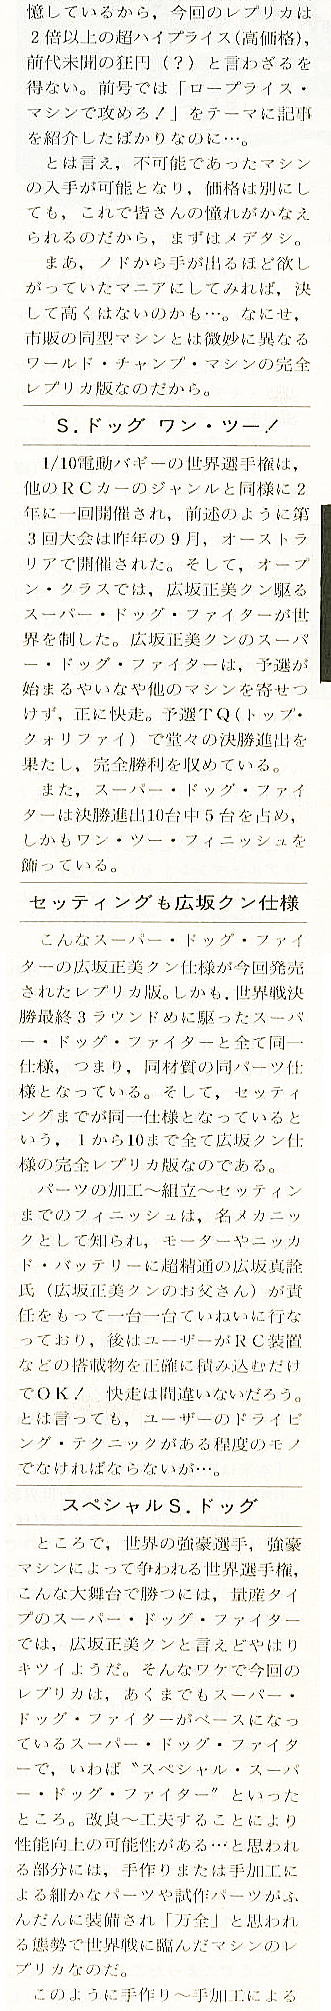 憶しているから，今回のレプリカは
２倍以上の超ハイプライス(高価格)，
前代未聞の狂円（？）と言わざるを
得ない。前号では「ロープライス・
マシンで攻めろ！」をテーマに記事
を紹介したばかりなのに…。
　とは言え，不可能であったマシン
の入手が可能となり，価格は別にし
ても，これで皆さんの憧れがかなえ
られるのだから，まずはメデタシ。
　まあ，ノドから手が出るほど欲し
がっていたマニアにしてみれば，決
して高くはないのかも…。なにせ，
市販の同型マシンとは微妙に異なる
ワールド・チャンプ・マシンの完全
レプリカ版なのだから。
Ｓ.ドッグ ワン・ツー！
　1/10電動バギーの世界選手権は，
他のＲＣカーのジャンルと同様に２
年に一回開催され，前述のように第
３回大会は昨年の９月，オーストラ
リアで開催された。そして，オープ
ン・クラスでは，広坂正美クン駆る
スーパー・ドッグ・ファイターが世
界を制した。広坂正美クンのスーパ
ー・ドッグ・ファイターは，予選が
始まるやいなや他のマシンを寄せつ
けず，正に快走。予選ＴＱ(トップ・
クォリファイ）で堂々の決勝進出を
果たし，完全勝利を収めている。
　また，スーパー・ドッグ・ファイ
ターは決勝進出10台中５台を占め，
しかもワン・ツー・フィニッシュを
飾っている。
セッティングも広坂クン仕様
　こんなスーパー・ドッグ・ファイ
ターの広坂正美クン仕様が今回発売
されたレプリカ版。しかも，世界戦決
勝最終３ラウンドめに駆ったスーパ
ー・ドッグ・ファイターと全て同一
仕様，つまり，同材質の同パーツ仕
様となっている。そして，セッティ
ングまでが同一仕様となっていると
いう，１から10まで全て広坂クン仕
様の完全レプリカ版なのである。
　パーツの加工〜組立〜セッティン
までのフィニッシュは，名メカニッ
クとして知られ，モーターやニッカ
ド・バッテリーに超精通の広坂真詮
氏（広坂正美クンのお父さん）が責
任をもって一台一台ていねいに行な
っており，後はユーザーがＲＣ装置
などの搭載物を正確に積み込むだけ
でＯＫ！　快走は間違いないだろう。
とは言っても，ユーザーのドライビ
ング・テクニックがある程度のモノ
でなければならないが…。
スペシャルＳ.ドッグ
　ところで，世界の強豪選手，強豪
マシンによって争われる世界選手権，
こんな大舞台で勝つには，量産タイ
プのスーパー・ドッグ・ファイター
では，広坂正美クンと言えどやはり
キツイようだ。そんなワケで今回の
レプリカは，あくまでもスーパー・
ドッグ・ファイターがベースになっ
ているスーパー・ドッグ・ファイタ
ーで，いわば〝スペシャル・スーパ
ー・ドッグ・ファイター〟といった
ところ。改良〜工夫することにより
性能向上の可能性がある…と思われ
る部分には，手作りまたは手加工に
よる細かなパーツや試作パーツがふ
んだんに装備され「万全」と思われ
る態勢で世界戦に臨んだマシンのレ
プリカなのだ。
　このように手作り〜手加工による